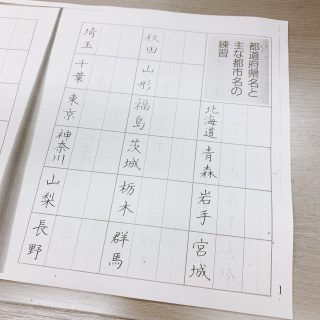 都道府県名と
主な都市名の
練習
北海道
青森
岩手
宮城
秋田
山形
福島
茨城
栃木
群馬
埼玉
千葉
東京
神奈川
山梨
長野
1